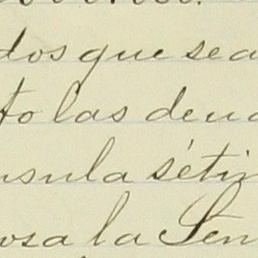 dos que sea
to las deud
nsula sétim
osa la Sen